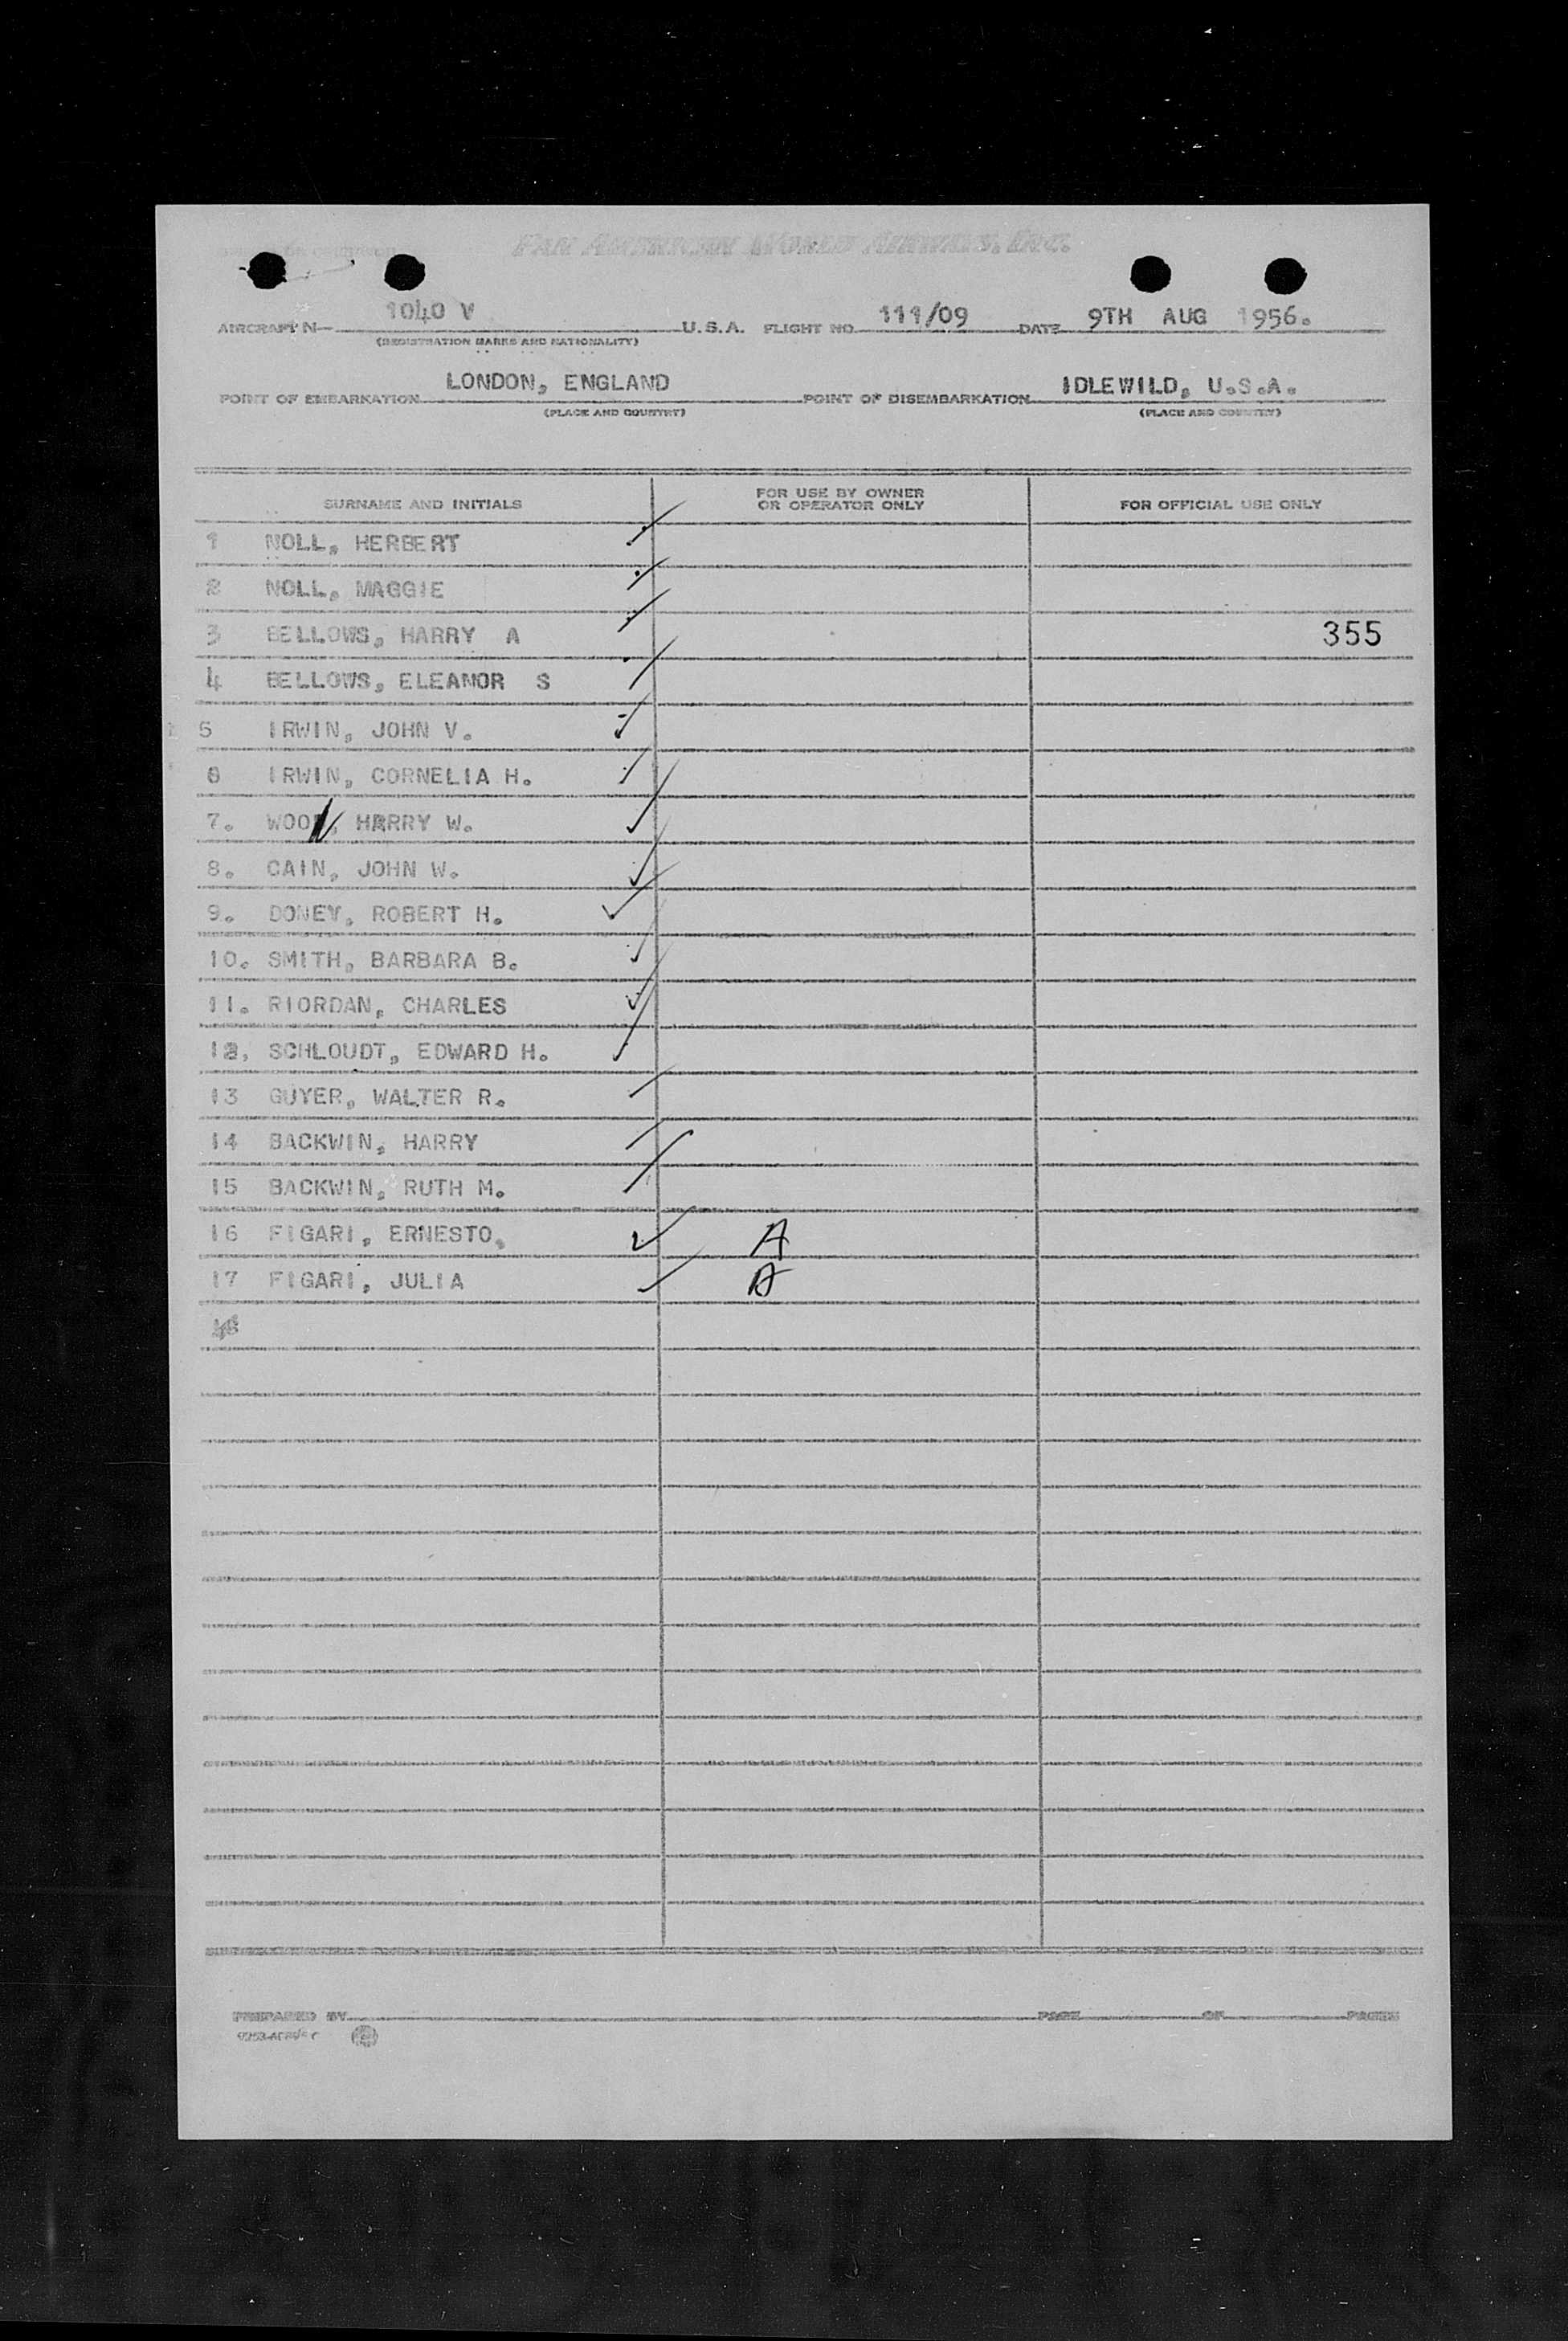 PAN AMERICAN WORLD AIRWAYS, INC.
AIRCRAFT N— 1040 V U.S.A. FLIGHT NO. 111/09 DATE 9TH AUG 1956.
(REGISTRATION MARKS AND NATIONALITY)
POINT OF EMBARKATION LONDON, ENGLAND POINT OF DISEMBARKATION IDLEWILD, U.S.A.
(PLACE AND COUNTRY) (PLACE AND COUNTRY)
SURNAME AND INITIALS FOR USE BY OWNER OR OPERATOR ONLY FOR OFFICIAL USE ONLY
1 NOLL, HERBERT
2 NOLL, MAGGIE
3 BELLOWS, HARRY A 355
4 BELLOWS, ELEANOR S
5 IRWIN, JOHN V.
6 IRWIN, CORNELIA H.
7. HARRY W.
8. CAIN, JOHN W.
9. DONEY, ROBERT H.
10. SMITH, BARBARA B.
11. RIORDAN, CHARLES
12, SCHLOUDT, EDWARD H.
13 GUYER, WALTER R.
14 BACKWIN, HARRY
15 BACKWIN, RUTH M.
16 FIGARI, ERNESTO, A
17 FIGARI, JULIA A
PREPARED BY PAGE OF PAGES